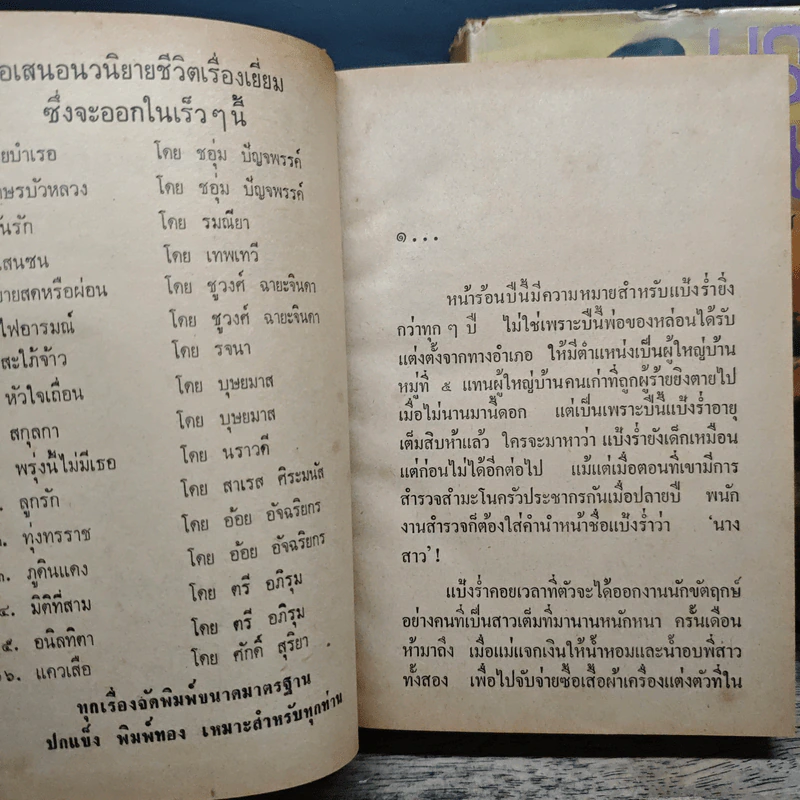 อเสนอนวนิยายชีวิตเรื่องเยี่ยม
ซึ่งจะออกในเร็วๆนี้
ยบำเรอ โดย ชอุ่ม ปัญจพรรค์
ษรบัวหลวง โดย ชอุ่ม ปัญจพรรค์
นรัก โดย รมณียา
เสนซน โดย เทพเทวี
ยายสดหรือผ่อน โดย ชูวงศ์ ฉายะจินดา
ไฟอารมณ์ โดย ชูวงศ์ ฉายะจินดา
สะใภ้จ้าว โดย รจนา
หัวใจเถื่อน โดย บุษยมาส
สกุลกา โดย บุษยมาส
พรุ่งนี้ไม่มีเธอ โดย นราวดี
ลูกรัก โดย สาเรส ศิระมนัส
๓. ทุ่งทรราช โดย อ้อย อัจฉริยกร
ภูดินแดง โดย อ้อย อัจฉริยกร
๔. มิติที่สาม โดย ตรี อภิรุม
๕. อนิลทิตา โดย ตรี อภิรุม
๑๖. แควเสือ โดย ศักดิ์ สุริยา
ทุกเรื่องจัดพิมพ์ขนาดมาตรฐาน
ปกแข็ง พิมพ์ทอง เหมาะสำหรับทุกท่าน
๑...
หน้าร้อนปีนี้มีความหมายสำหรับแป้งร่ำยิ่ง
กว่าทุกๆปี ไม่ใช่เพราะปีนี้พ่อของหล่อนได้รับ
แต่งตั้งจากทางอำเภอ ให้มีตำแหน่งเป็นผู้ใหญ่บ้าน
หมู่ที่ ๕ แทนผู้ใหญ่บ้านคนเก่าที่ถูกผู้ร้ายยิงตายไป
เมื่อไม่นานมานี้ดอก แต่เป็นเพราะปีนี้แป้งร่ำอายุ
เต็มสิบห้าแล้ว ใครจะมาหาว่า แป้งร่ำยังเด็กเหมือน
แต่ก่อนไม่ได้อีกต่อไป แม้แต่เมื่อตอนที่เขามีการ
สำรวจสำมะโนครัวประชากรกันเมื่อปลายปี พนัก
งานสำรวจก็ต้องใส่คำนำหน้าชื่อแป้งร่ำว่า 'นาง
สาว'!
แป้งร่ำคอยเวลาที่ตัวจะได้ออกงานนักขัตฤกษ์
อย่างคนที่เป็นสาวเต็มที่มานานหนักหนา ครั้นเดือน
ห้ามาถึง เมื่อแม่แจกเงินให้น้ำหอมและน้ำอบพี่สาว
ทั้งสอง เพื่อไปจับจ่ายซื้อเสื้อผ้าเครื่องแต่งตัวที่ใน